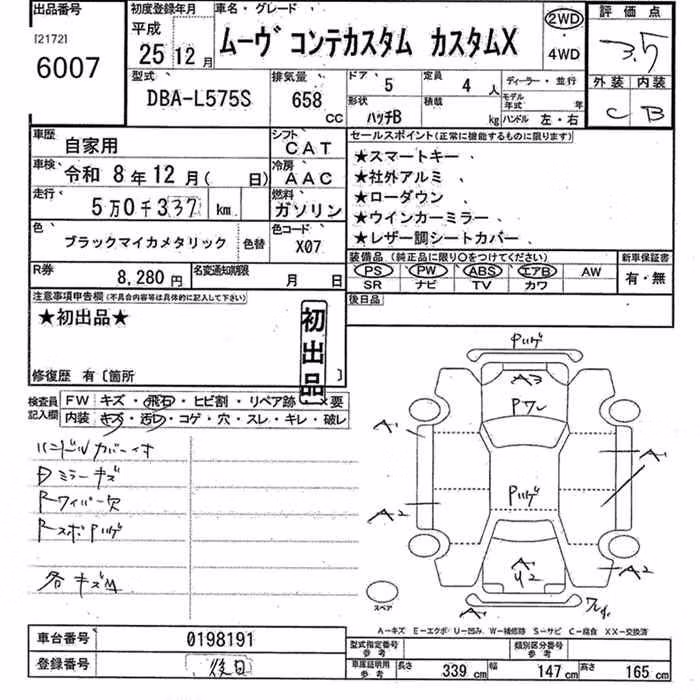 出品番号
[2172]
6007
初度登録年月
平成
25年12月
車名・グレード
ムーヴ コンテカスタム カスタムX
2WD
・
4WD
評価点
3.5
外装 内装
C B
型式
DBA-L575S
排気量
658
cc
ドア
5
定員
4人
形状
ハッチB
積載
kg
ディーラー・並行
モデル年式 年
ハンドル 左・右
車歴
自家用
シフト
CAT
車検
令和 8年12月( 日)
冷房
AAC
走行
5万0千337 km
燃料
ガソリン
色
ブラックマイカメタリック
色替
色コード
X07
R券
8,280円
名変通知期限
月 日
セールスポイント(正常に機能するものに限ります)
★スマートキー、
★社外アルミ、
★ローダウン、
★ウインカーミラー、
★レザー調シートカバー、
装備品(純正品に限り〇をつけてください)
PS PW ABS エアB AW
SR ナビ TV カワ
新車保証書
有・無
後日品
注意事項申告欄(不具合内容等は具体的に記入して下さい)
★初出品★
初出品
修復歴 有〔箇所 〕
検査員記入欄
FW キズ・飛石・ヒビ割・リペア跡・×要
内装 キズ・汚レ・コゲ・穴・スレ・キレ・破レ
ハンドルカバー付
Dミラーキズ
Rワイパー欠
RスポPハゲ
各キズM
Pハゲ
A3
Pワレ
A1
A1
Pハゲ
A2
A
U2
A2
ワレ
スペア
A-キズ E-エクボ U-凹み W-補修跡 S-サビ C-腐食 XX-交換済
車台番号
0198191
登録番号
後日
型式指定番号
参考
類別区分番号
参考
車庫証明用
参考
長さ 339cm 幅 147cm 高さ 165cm